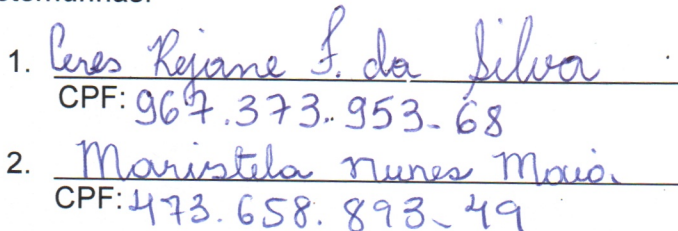 1. Ceres Rejane F. da Silva
CPF: 967.373.953-68
2. Maristela Nunes Maia
CPF: 473.658.893-49